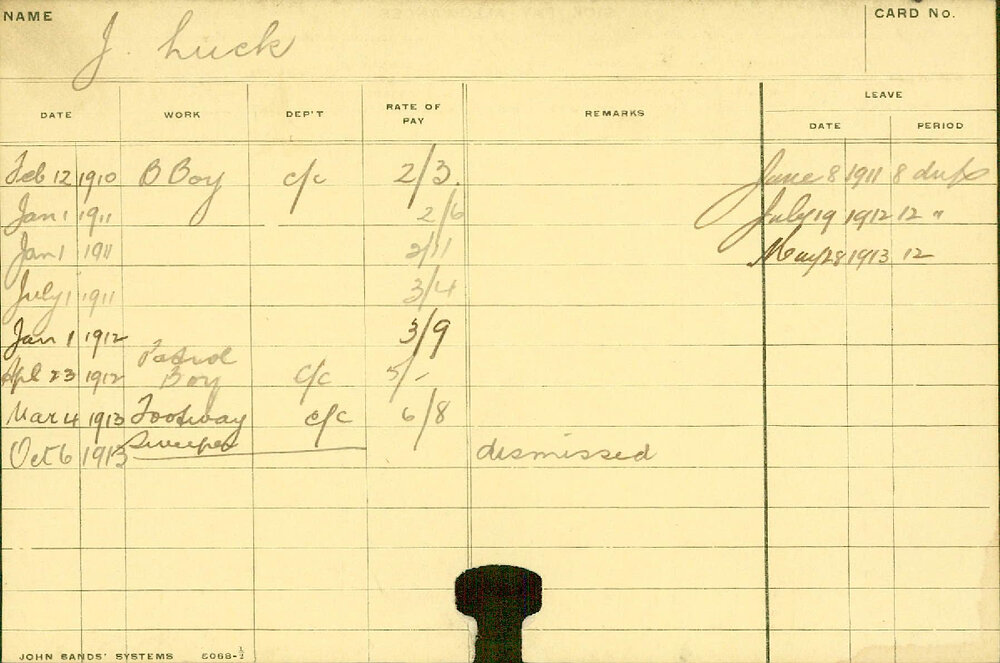 NAME J. Luck CARD No.
LEAVE
DATE WORK DEP'T RATE OF PAY REMARKS DATE PERIOD
Feb 12 1910 B Boy c/c 2/3 June 8 1911 8 days
Jan 1 1911 2/6 July 19 1912 12 "
Jan 1 1911 2/11 May 28 1913 12
July 1 1911 3/4
Jan 1 1912 3/9
Patrol
Apl 23 1912 Boy c/c 5/-
Mar 4 1913 Footway c/c 6/8
Sweeper
Oct 6 1913 dismissed
JOHN SANDS' SYSTEMS